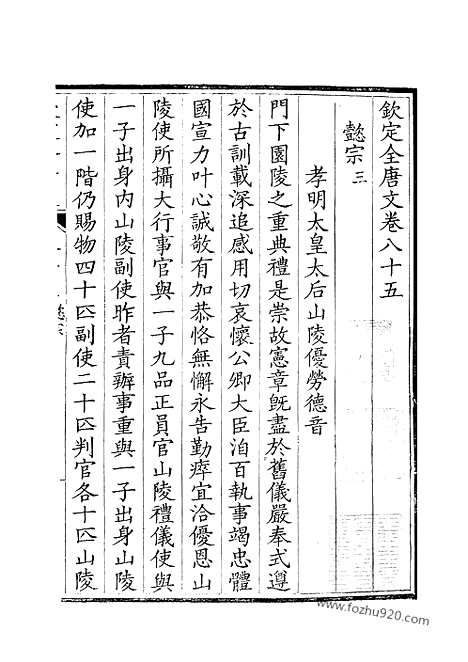 欽定全唐文卷八十五
懿宗三
孝明太皇太后山陵優勞德音
門下園陵之重典禮是崇故憲章旣盡於舊儀嚴奉式遵
於古訓載深追感用切哀懷公卿大臣洎百執事竭忠體
國宣力叶心誠敬有加恭恪無懈永告勤瘁宜洽優恩山
陵使所攝大行事官與一子九品正員官山陵禮儀使與
一子出身內山陵副使昨者責辦事重與一子出身山陵
使加一階仍賜物四十匹副使二十匹判官各十匹山陵
www.fozhu920.com